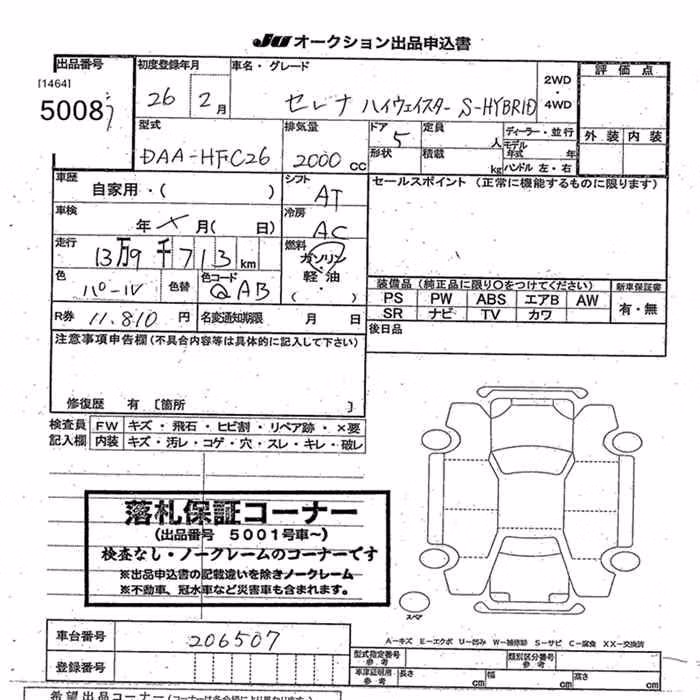 JU オークション出品申込書
出品番号
[1464]
5008
初度登録年月
26 2月
車名・グレード
セレナ ハイウェイスター S-HYBRID
2WD
・
4WD
評価点
外装 内装
型式
DAA-HFC26
排気量
2000 CC
ドア 5
形状
定員 人
積載 kg
ディーラー・並行
モデル年式 年
ハンドル 左・右
車歴
自家用・( )
シフト
AT
セールスポイント (正常に機能するものに限ります)
車検
年 月( 日)
冷房
AC
走行
13万9千713km
燃料
ガソリン
・
軽油
( )
色
パール
色替
色コード
QAB
装備品 (純正品に限り○をつけてください)
新車保証書
PS PW ABS エアB AW
有・無
SR ナビ TV カワ
R券 11,810 円
名変通知期限 月 日
後日品
注意事項申告欄 (不具合内容等は具体的に記入して下さい)
修復歴 有 〔箇所 〕
検査員
記入欄
FW キズ・飛石・ヒビ割・リペア跡・×要
内装 キズ・汚レ・コゲ・穴・スレ・キレ・破レ
落札保証コーナー
(出品番号 5001号車~)
検査なし・ノークレームのコーナーです
※出品申込書の記載違いを除きノークレーム
※不動車、冠水車など災害車も含まれます。
スペア
A−キズ E−エクボ U−凹み W−補修跡 S−サビ C−腐食 XX−交換済
車台番号
206507
登録番号
型式指定番号
参考
類別区分番号
参考
車検証明用
参考
長さ cm
幅 cm
高さ cm
希望出品コーナー